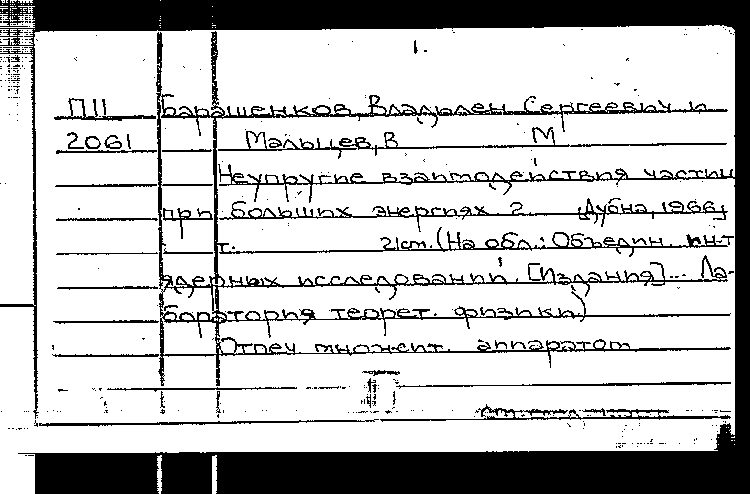 1.
П11 Барашенков, Владылен Сергеевич и
2061 Мальцев, В М
Неупругие взаимодействия частиц
при больших энергиях. 2 [Дубна, 1966]
т. 21ст. (На обл.: Объедин. ин-т
ядерных исследований. [Издания]... Ла-
боратория теорет. физики)
Отпеч. множит. аппаратом